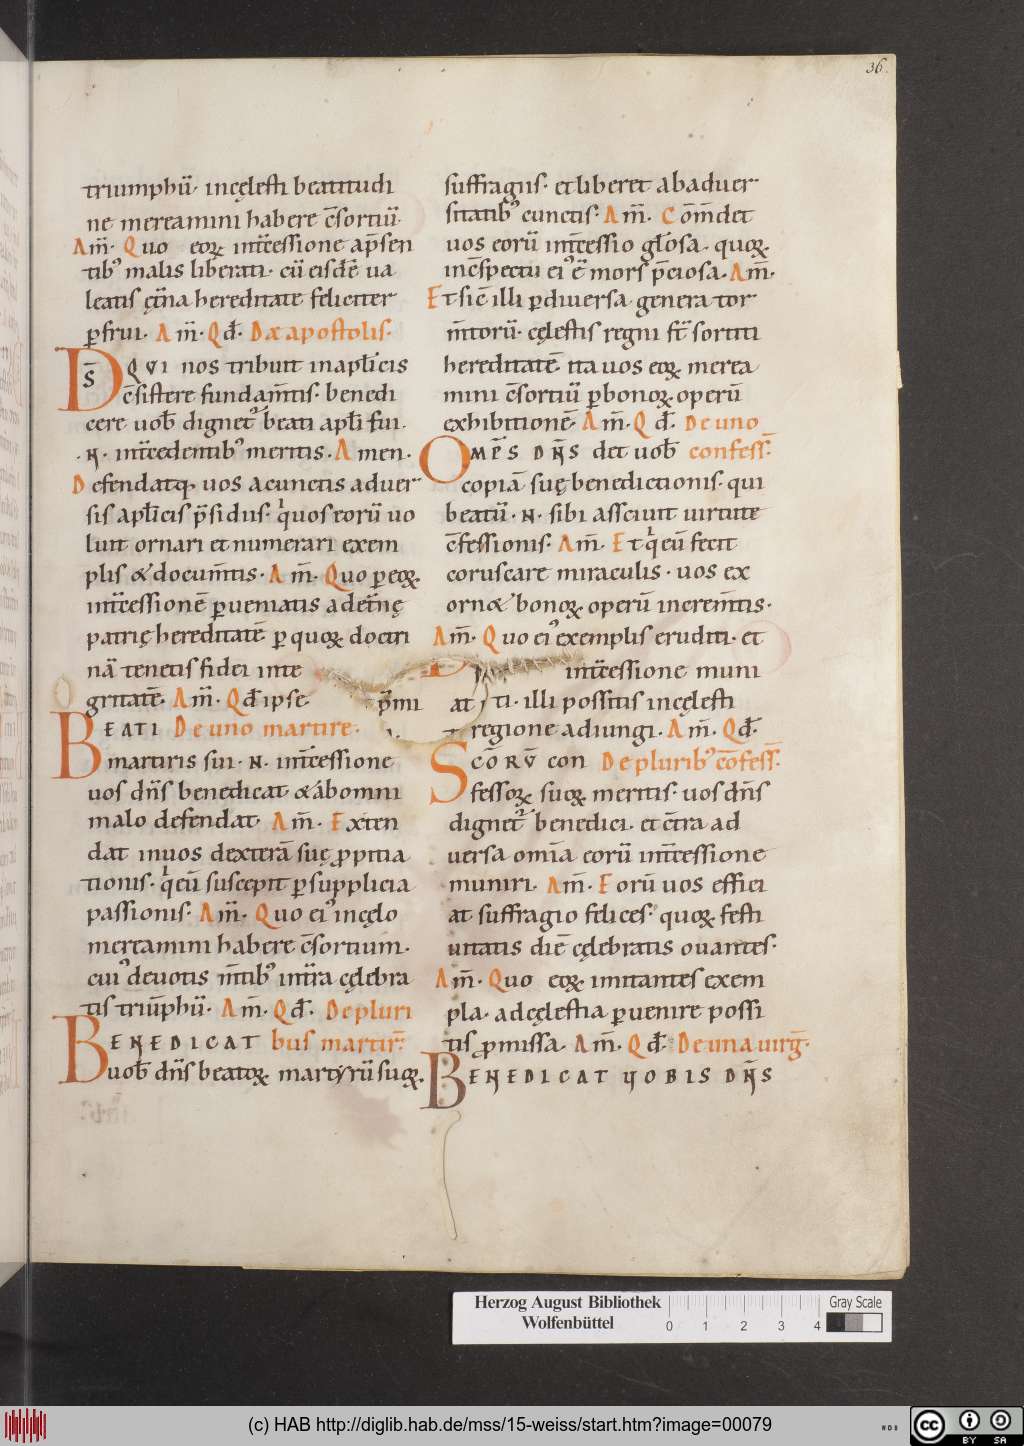 36.
triumphū· incęlesti beatitudi
ne mereamini habere c̄sortiū·
Am̄· Quo eoꝝ int̄cessione ap̄sen
tib᾽ malis liberati· cū eisdē ua
leatis ęt̄na hereditate feliciter
ꝑfrui· Am̄· Qd̄· De apostolis·
DS̄ QVI nos tribuit inapl̄icis
c̄sistere fundam̄tis· benedi
cere uob̄ dignet᾽ beati apl̄i sui·
·N· int̄cedentib᾽ meritis· Amen·
Defendatq· uos acunctis aduer
sis apl̄icis p̄sidiis· qͥuos eorū uo
luit ornari et numerari exem
plis & docum̄tis· Am̄· Quo ꝑ eoꝝ
int̄cessionē ꝑueniatis ad et̄nę
patrię hereditatē ꝑ quoꝝ doctri
nā tenetis fidei inte
gritatē· Am̄· Qd̄ ipse p̄mi
BEATI De uno martire·
martiris sui· N· int̄cessione
uos dn̄s benedicat & ábomni
malo defendat· Am̄· Exten
dat inuos dexterā suę ꝓpitia
tionis· qͥeū suscepit ꝑsupplicia
passionis· Am̄· Quo ei᾽ incęlo
mereamini habere c̄sortium·
cui᾽ deuotis m̄tib᾽ intͣra cęlebra
tis triūphū· Am̄· Qd̄· De pluri
BENEDICAT bus martir̄·
uob̄ dn̄s beatoꝝ martyrū suoꝝ·
suffragiis· et liberet abaduer
sitatib᾽ cunctis· Am̄· Com̄det
uos eorū int̄cessio gl̄osa· quoꝝ·
inc̄spectu ei᾽ ē mors p̄ciosa· Am̄·
Et sic̄ illi ꝑdiuersa genera tor
m̄torū· cęlestis regni st̄ sortiti
hereditatē· ita uos eoꝝ merea
mini c̄sortiū ꝑbonoꝝ operū
exhibitionē· Am̄· Qd̄· De uno
OMP̄S DN̄S det uob̄ confess̄·
copiā suę benedictionis· qui
beatū· N· sibi assciuit uirtute
c̄fessionis· Am̄· Et qͥeū fecit
coruscare miraculis· uos ex
orn& bonoꝝ operū increm̄tis·
Am̄· Quo ei᾽ exemplis eruditi· et
int̄cessione muni
ti· illi possitis incęlesti
regione adiungi· Am̄· Qd̄·
SCŌRV̄ con De plurib᾽ cōfess̄·
fessoꝝ suoꝝ meritis· uos dn̄s
dignet᾽ benedici· et c̄tra ad
uersa om̄ia eorū int̄cessione
muniri· Am̄· Eorū uos effici
at suffragio felices· quoꝝ festi
uitatis diē cęlebratis ouantes·
Am̄· Quo eoꝝ imitantes exem
pla· adcęlestia ꝑuenire possi
tis ꝓmissa· Am̄· Qd̄· De una uirḡ·
BENEDICAT VOBIS DN̄S
Herzog August Bibliothek
Wolfenbüttel
0 1 2 3 4
Gray Scale
(c) HAB http://diglib.hab.de/mss/15-weiss/start.htm?image=00079
cc BY SA